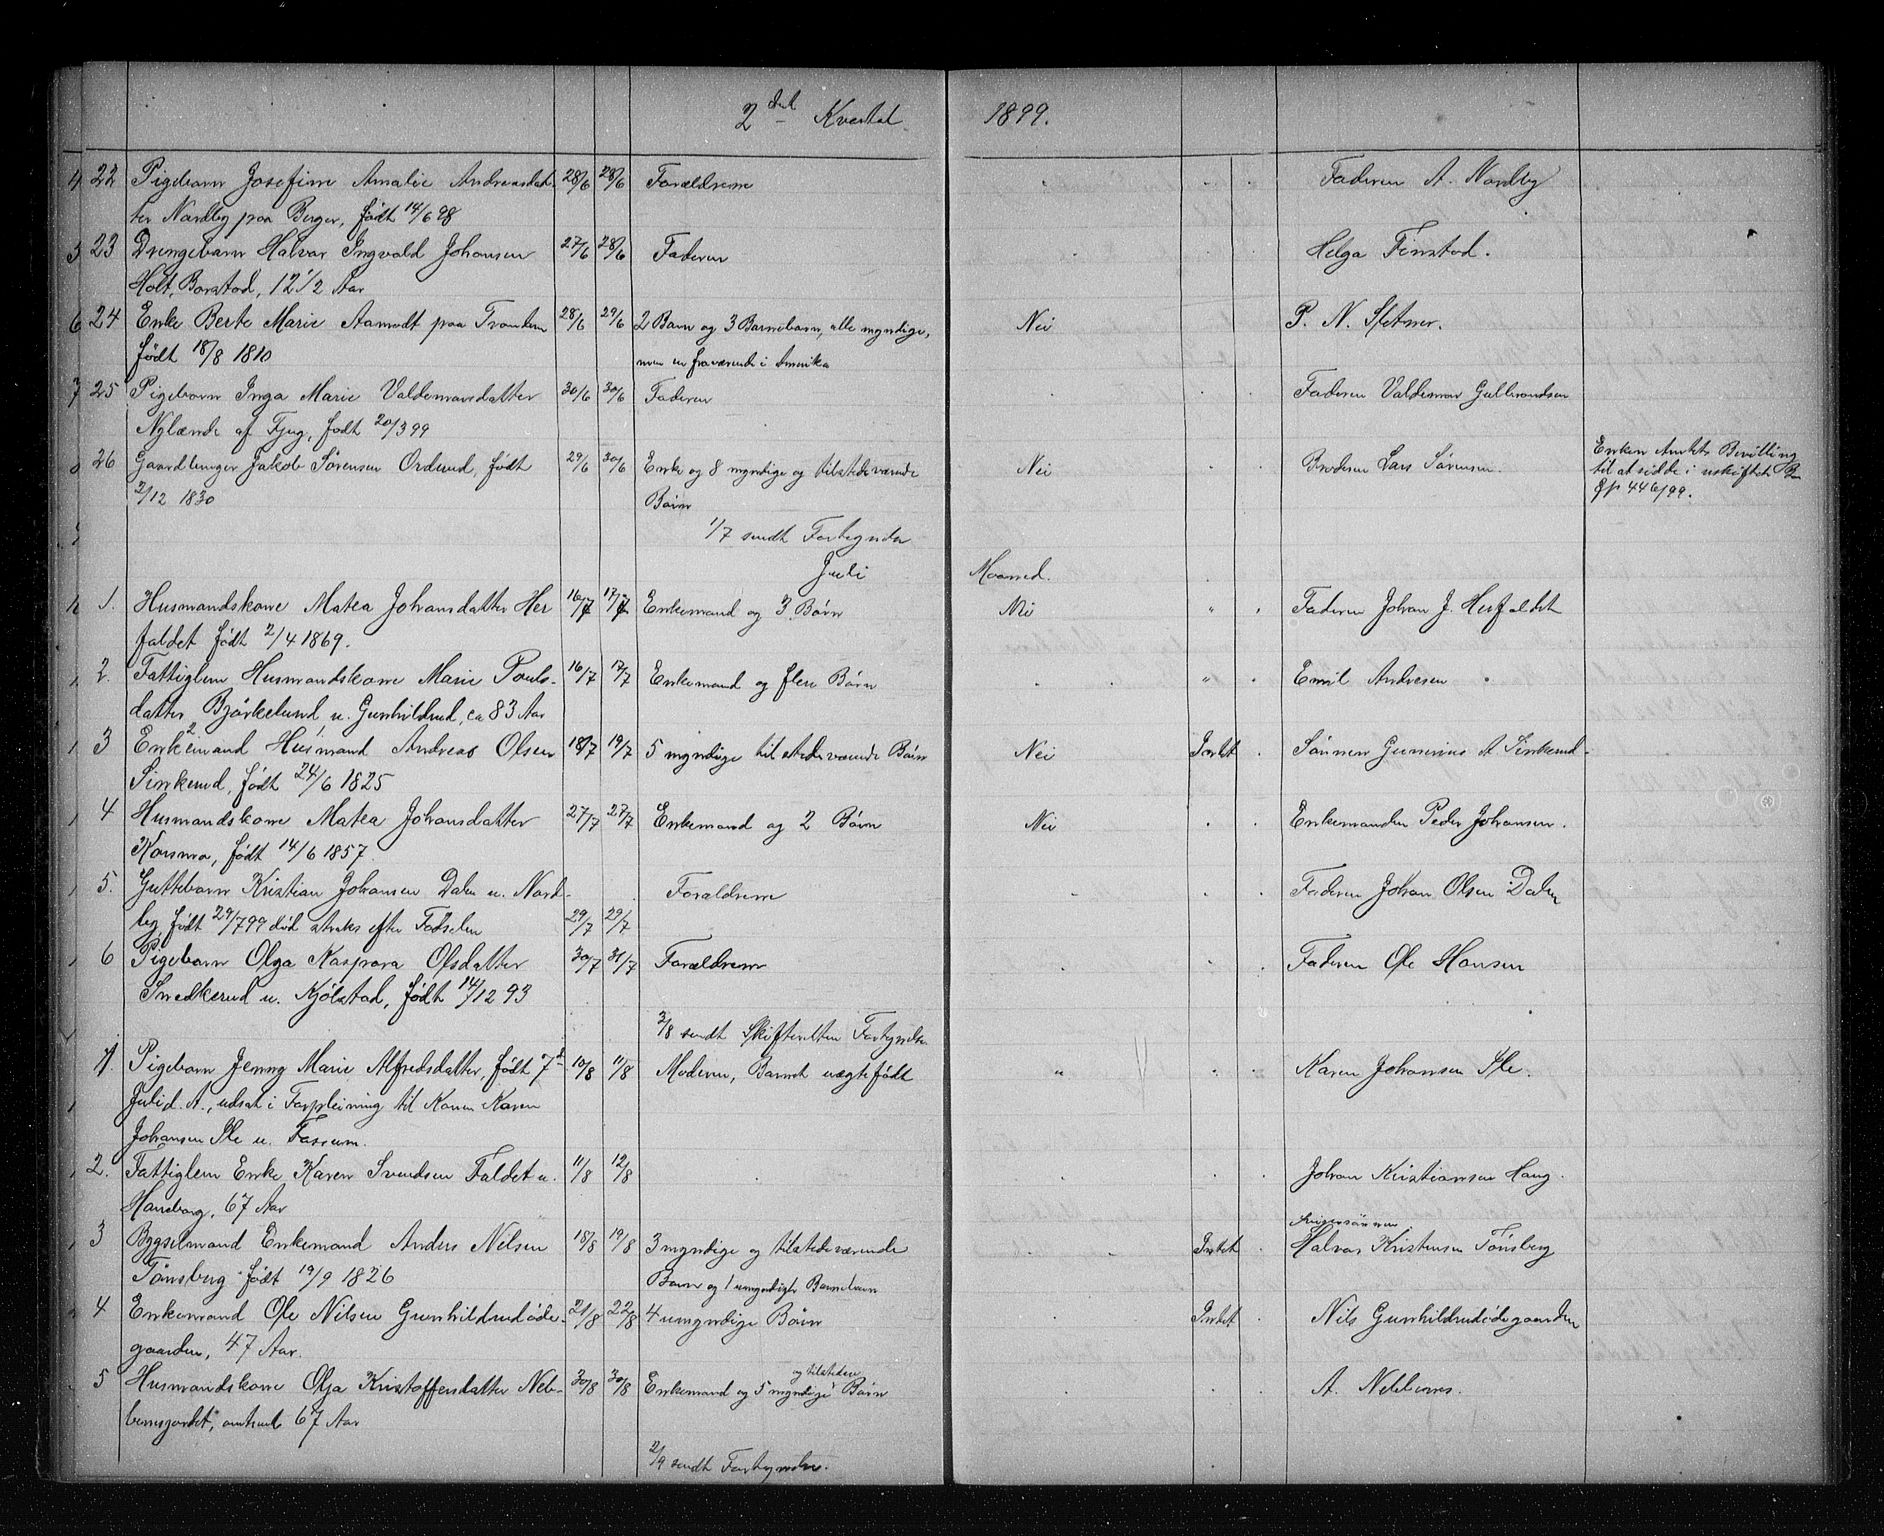 2det Kvartal 1899.
4 22 Pigebarn Josefine Amalie Andreasdat- 28/6 28/6 Forældrene " " " Faderen A. Nordby
ter Nordby paa Berger, født 14/6 98
5 23 Drengebarn Halvar Ingvald Johansen 27/6 28/6 Faderen " " " Helga Finstad.
Holt, Borstad, 12 1/2 Aar
6 24 Enke Berte Marie Aamodt paa 28/6 29/6 2 Barn og 3 Barnebarn, alle myndige, Nei P. N.
født 18/8 1810 men en fraværende i Amerika
7 25 Pigebarn Inga Marie Valdemarsdatter 30/6 30/6 Faderen Faderen Valdemar Gulbrandsen
Nylænde af Fjug, født 20/3 99
26 Gaardbruger Jakob Sørensen Orderud, født 29/6 30/6 Enke og 8 myndige og tilstedeværende Nei Broderen Lars Sørensen. Enken Amtets Bevilling
til at sidde i uskiftet Bo
2/12 1830 Børn
446/99.
1/7 sendt Fortegnelse
Juli Maaned.
1. Husmandskone Matea Johansdatter Her 16/7 17/7 Enkemand og 3 Børn Nei " " Faderen Johan J. Herfaldet
faldet født 2/4 1869.
2. Fattiglem Husmandskone Marie Pouls- 16/7 17/7 Enkemand og flere Børn " Emil Andresen
datter Bjørkelund u. Gunhildrud, ca 83 Aar
3 Enkemand Husmand Andreas Olsen 18/7 19/7 5 myndige tilstedeværende Børn Nei Intet Sønnen Gunerius A Sinkerud
Sinkerud, født 24/6 1825
4 Husmandskone Matea Johansdatter 27/7 27/7 Enkemand og 2 Børn Nei Enkemanden Peder Johansen.
Korsmo, født 14/6 1857.
5. Guttebarn Kristian Johansen Dalen u. Nord- Forældrene Faderen Johan Olsen Dalen
by, født 29/7 99 død straks efter Fødselen 29/7 29/7
6 Pigebarn Olga Kaspara Olsdatter 30/7 31/7 Forældrene Faderen Ole Hansen
Snedkerud u. Kjølstad, født 14/12 93
2/8 sendt Skifteretten Fortegnelse
1. Pigebarn Jenny Marie Alfredsdatter, født 7de 10/8 11/8 Moderen, Barnet uægtefødt " Karen Johansen Ile.
Juli d. A., udsat i Forpleining til Konen Karen
Johansen Ile u. Fossum.
2. Fattiglem Enke Karen Svendsen Faldet u. 11/8 12/8 Johan Kristiansen Haug.
Haneborg, 67 Aar
3 Bygselmand Enkemand Anders Nilsen 18/8 19/8 3 myndige og tilstedeværende Intet Svigersønnen
Halvor Kristensen Tønsberg
Tønsberg født 19/9 1826 Børn og 1 umyndigt Barnebarn
4 Enkemand Ole Nilsen Gunhildrudøde- 21/8 22/8 4 umyndige Børn Intet Nils Gunhildrudødegaarden
gaarden, 47 Aar.
5 Husmandskone Olja Kristoffersdatter Neb- 30/8 30/8 Enkemand og 5 myndige og tilstedev. Børn A. Nebbenes.
benesgardet, omtrent 67 Aar
2/9 sendt Fortegnelse.